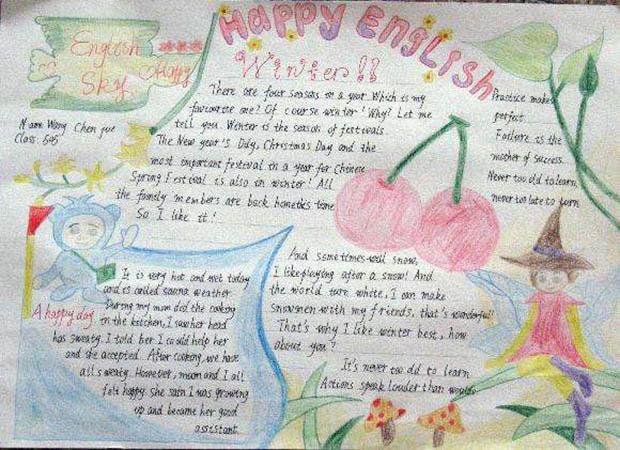 Happy English
English
Sky
Happy
Name Wang Chen yue
Class: 505
Winter!!
There are four seasons in a year. Which is my
favourite one? Of course winter! Why? Let me
tell you. Winter is the season of festivals
The New year's Day, Christmas Day and the
most important festival in a year for Chinese
Spring Festival is also in winter! All
the family members are back home
So I like it!
Practice makes
perfect.
Failure is the
mother of success.
Never too old to learn,
never too late to turn
And sometimes
I like playing after a snow! And
the world turn white, I can make
snowmen with my friends, that's wonderful!
That's why I like winter best, how
about you?
It's never too old to learn
Actions speak louder than
A happy day
It is very hot and wet today
and is called sauna weather
During my mum did the cooking
in the kitchen, I saw her head
has sweaty. I told her I could help her
and she accepted. After cooking, we have
all sweaty. However, mum and I all
felt happy. She sain I was growing
up and became her good
assistant.